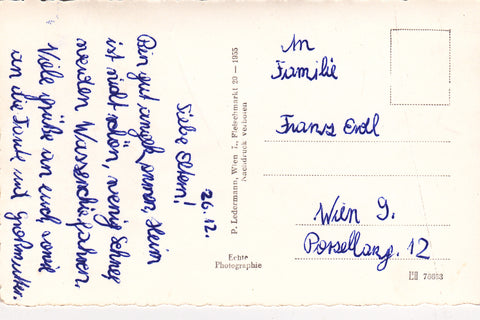 26.12.
Liebe Eltern!
Bin gut angekommen, Heim
ist nicht schön, wenig Schnee
werden Wasserschie fahren.
Viele Grüße an euch sowie
an die Tante und Großmutter.
P. Ledermann, Wien I., Fleischmarkt 20 — 1955
Nachdruck verboten
Echte
Photographie
An
Familie
Franz Erdl
Wien 9.
Porzellang. 12